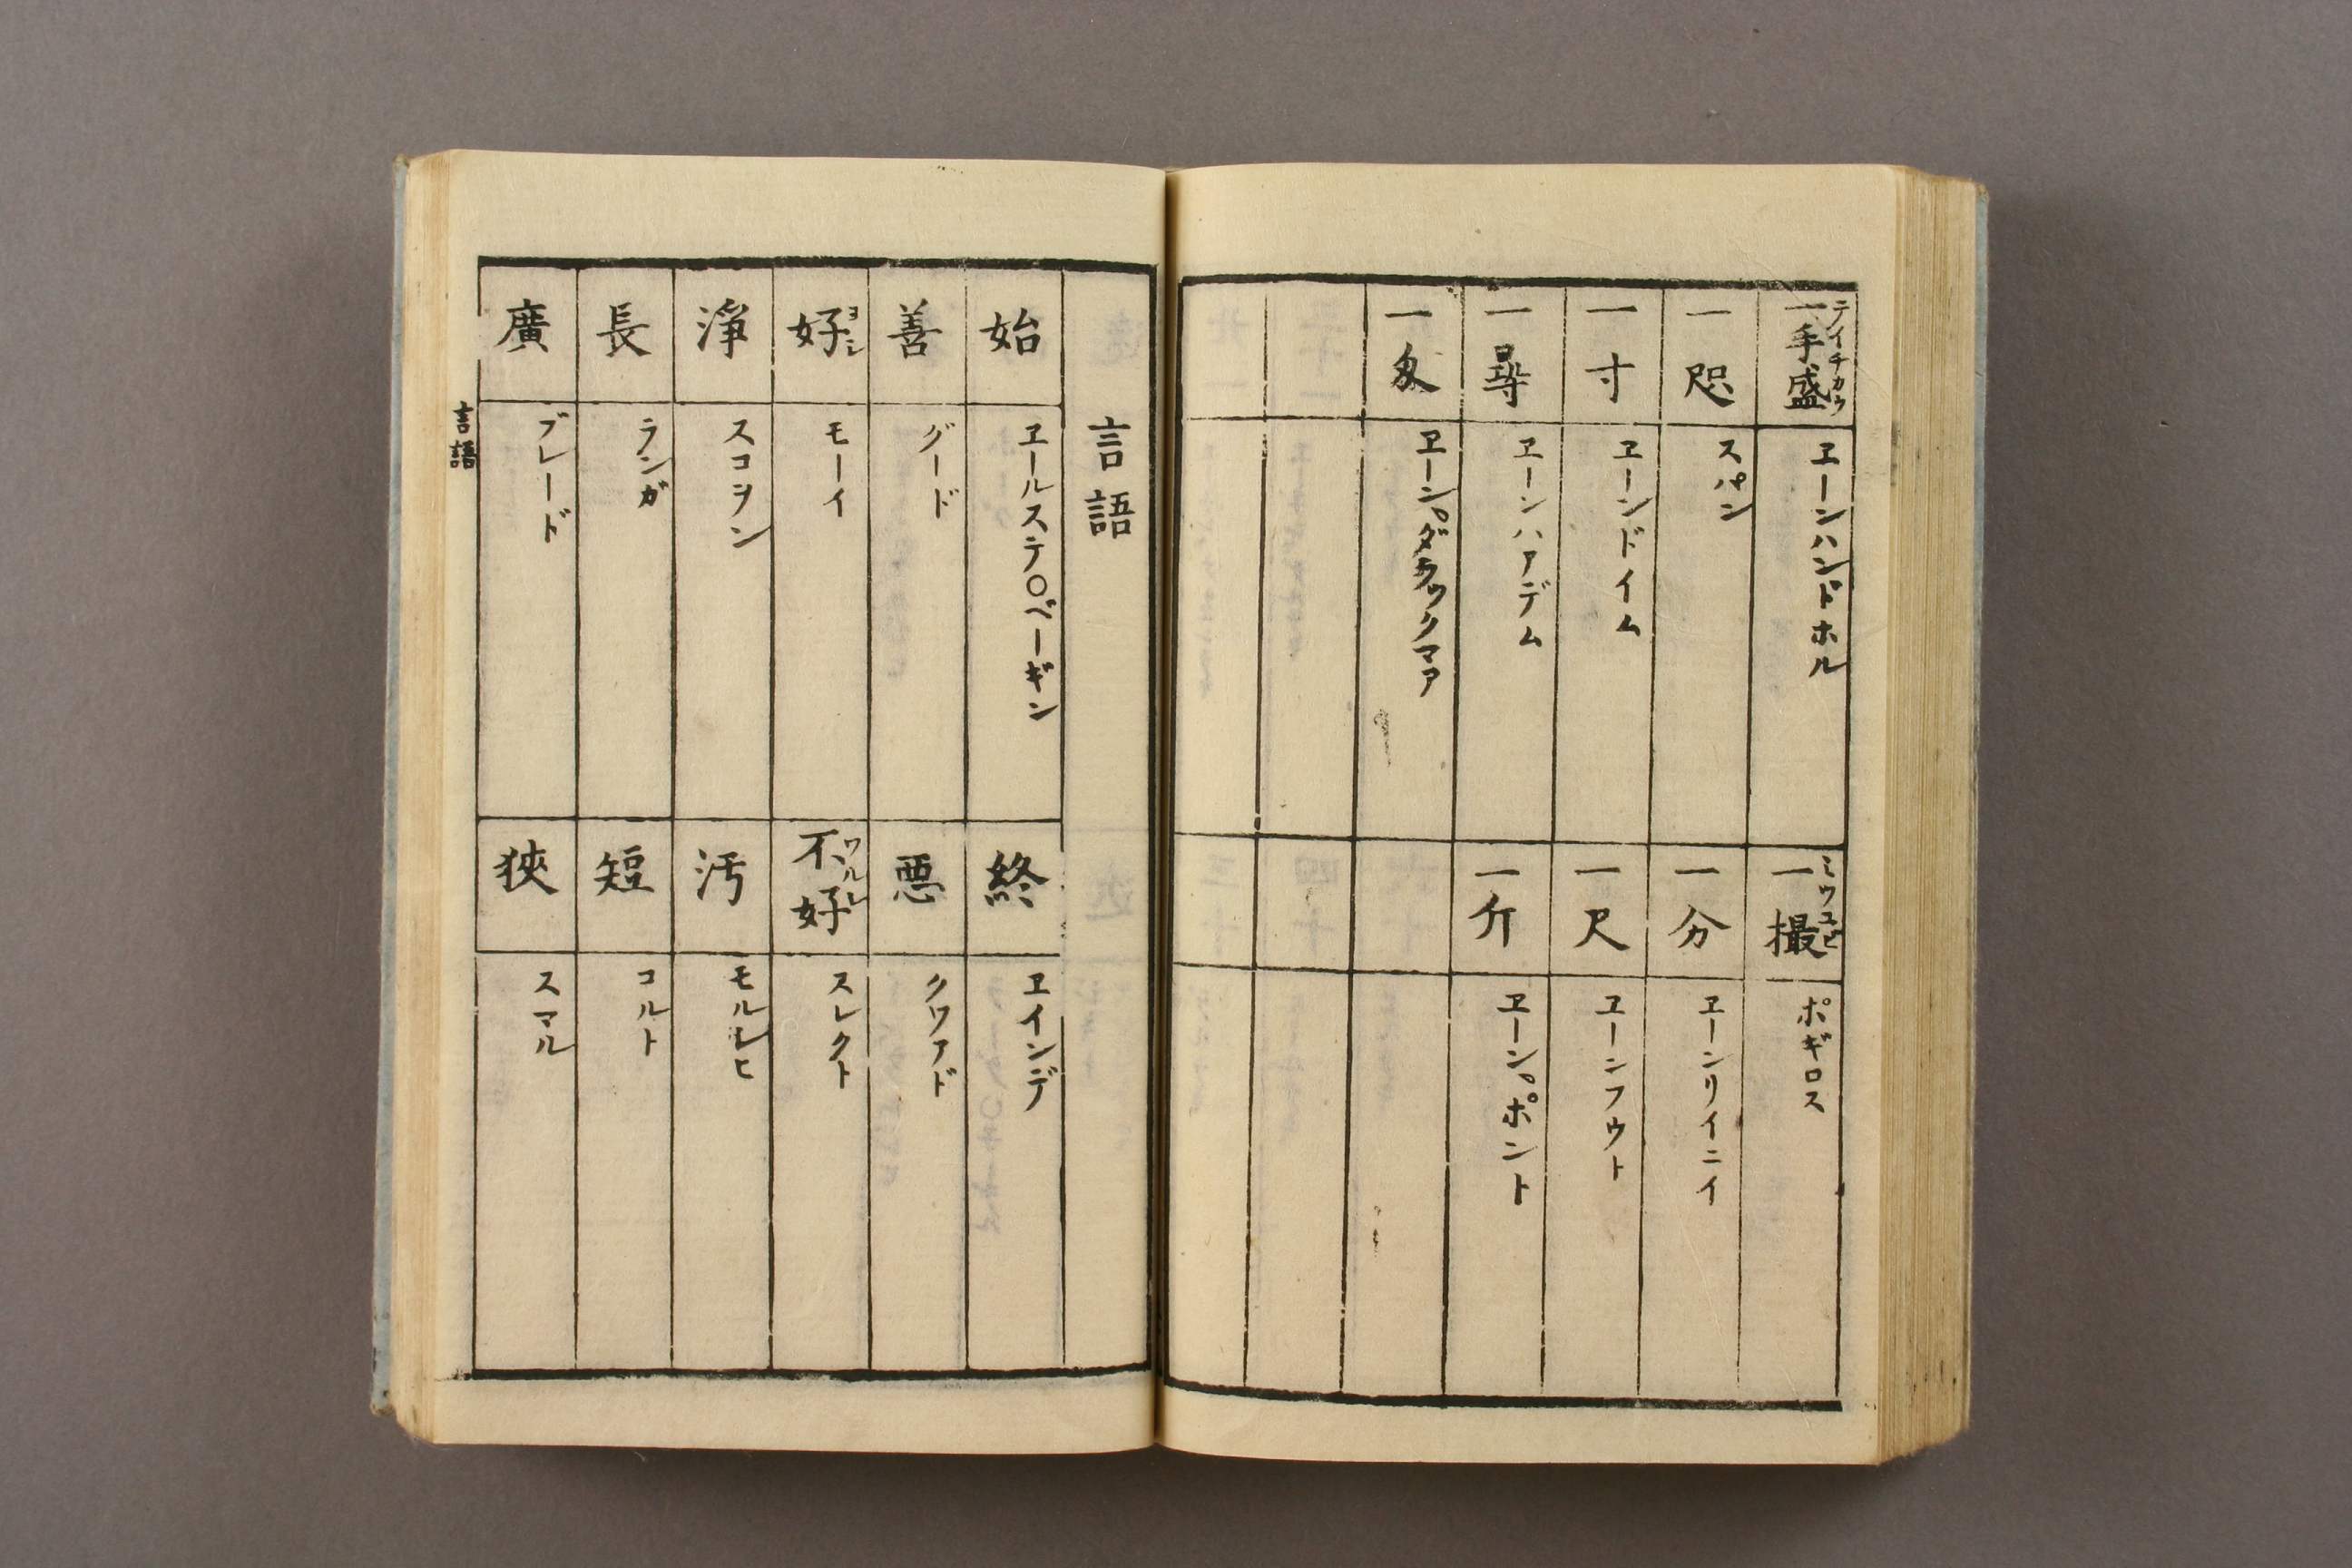 一手盛 テイチカウ
ヱーンハンドホル
一撮 ミツユビ
ポギロス
一咫
スパン
一分
ヱーンリイニイ
一寸
ヱーンドイム
一尺
ヱーンフウト
一尋
ヱーンハアデム
一斤
ヱーン。ポント
一匁
ヱーン。ダラックマア
言語
始
ヱールステ〇ベーギン
終
ヱインデ
善
グード
悪
クワアド
好 ヨシ
モーイ
不好 ワルシ
スレクト
淨
スコヲン
汚
モルレヒ
長
ランガ
短
コルト
廣
ブレード
狹
スマル
言語